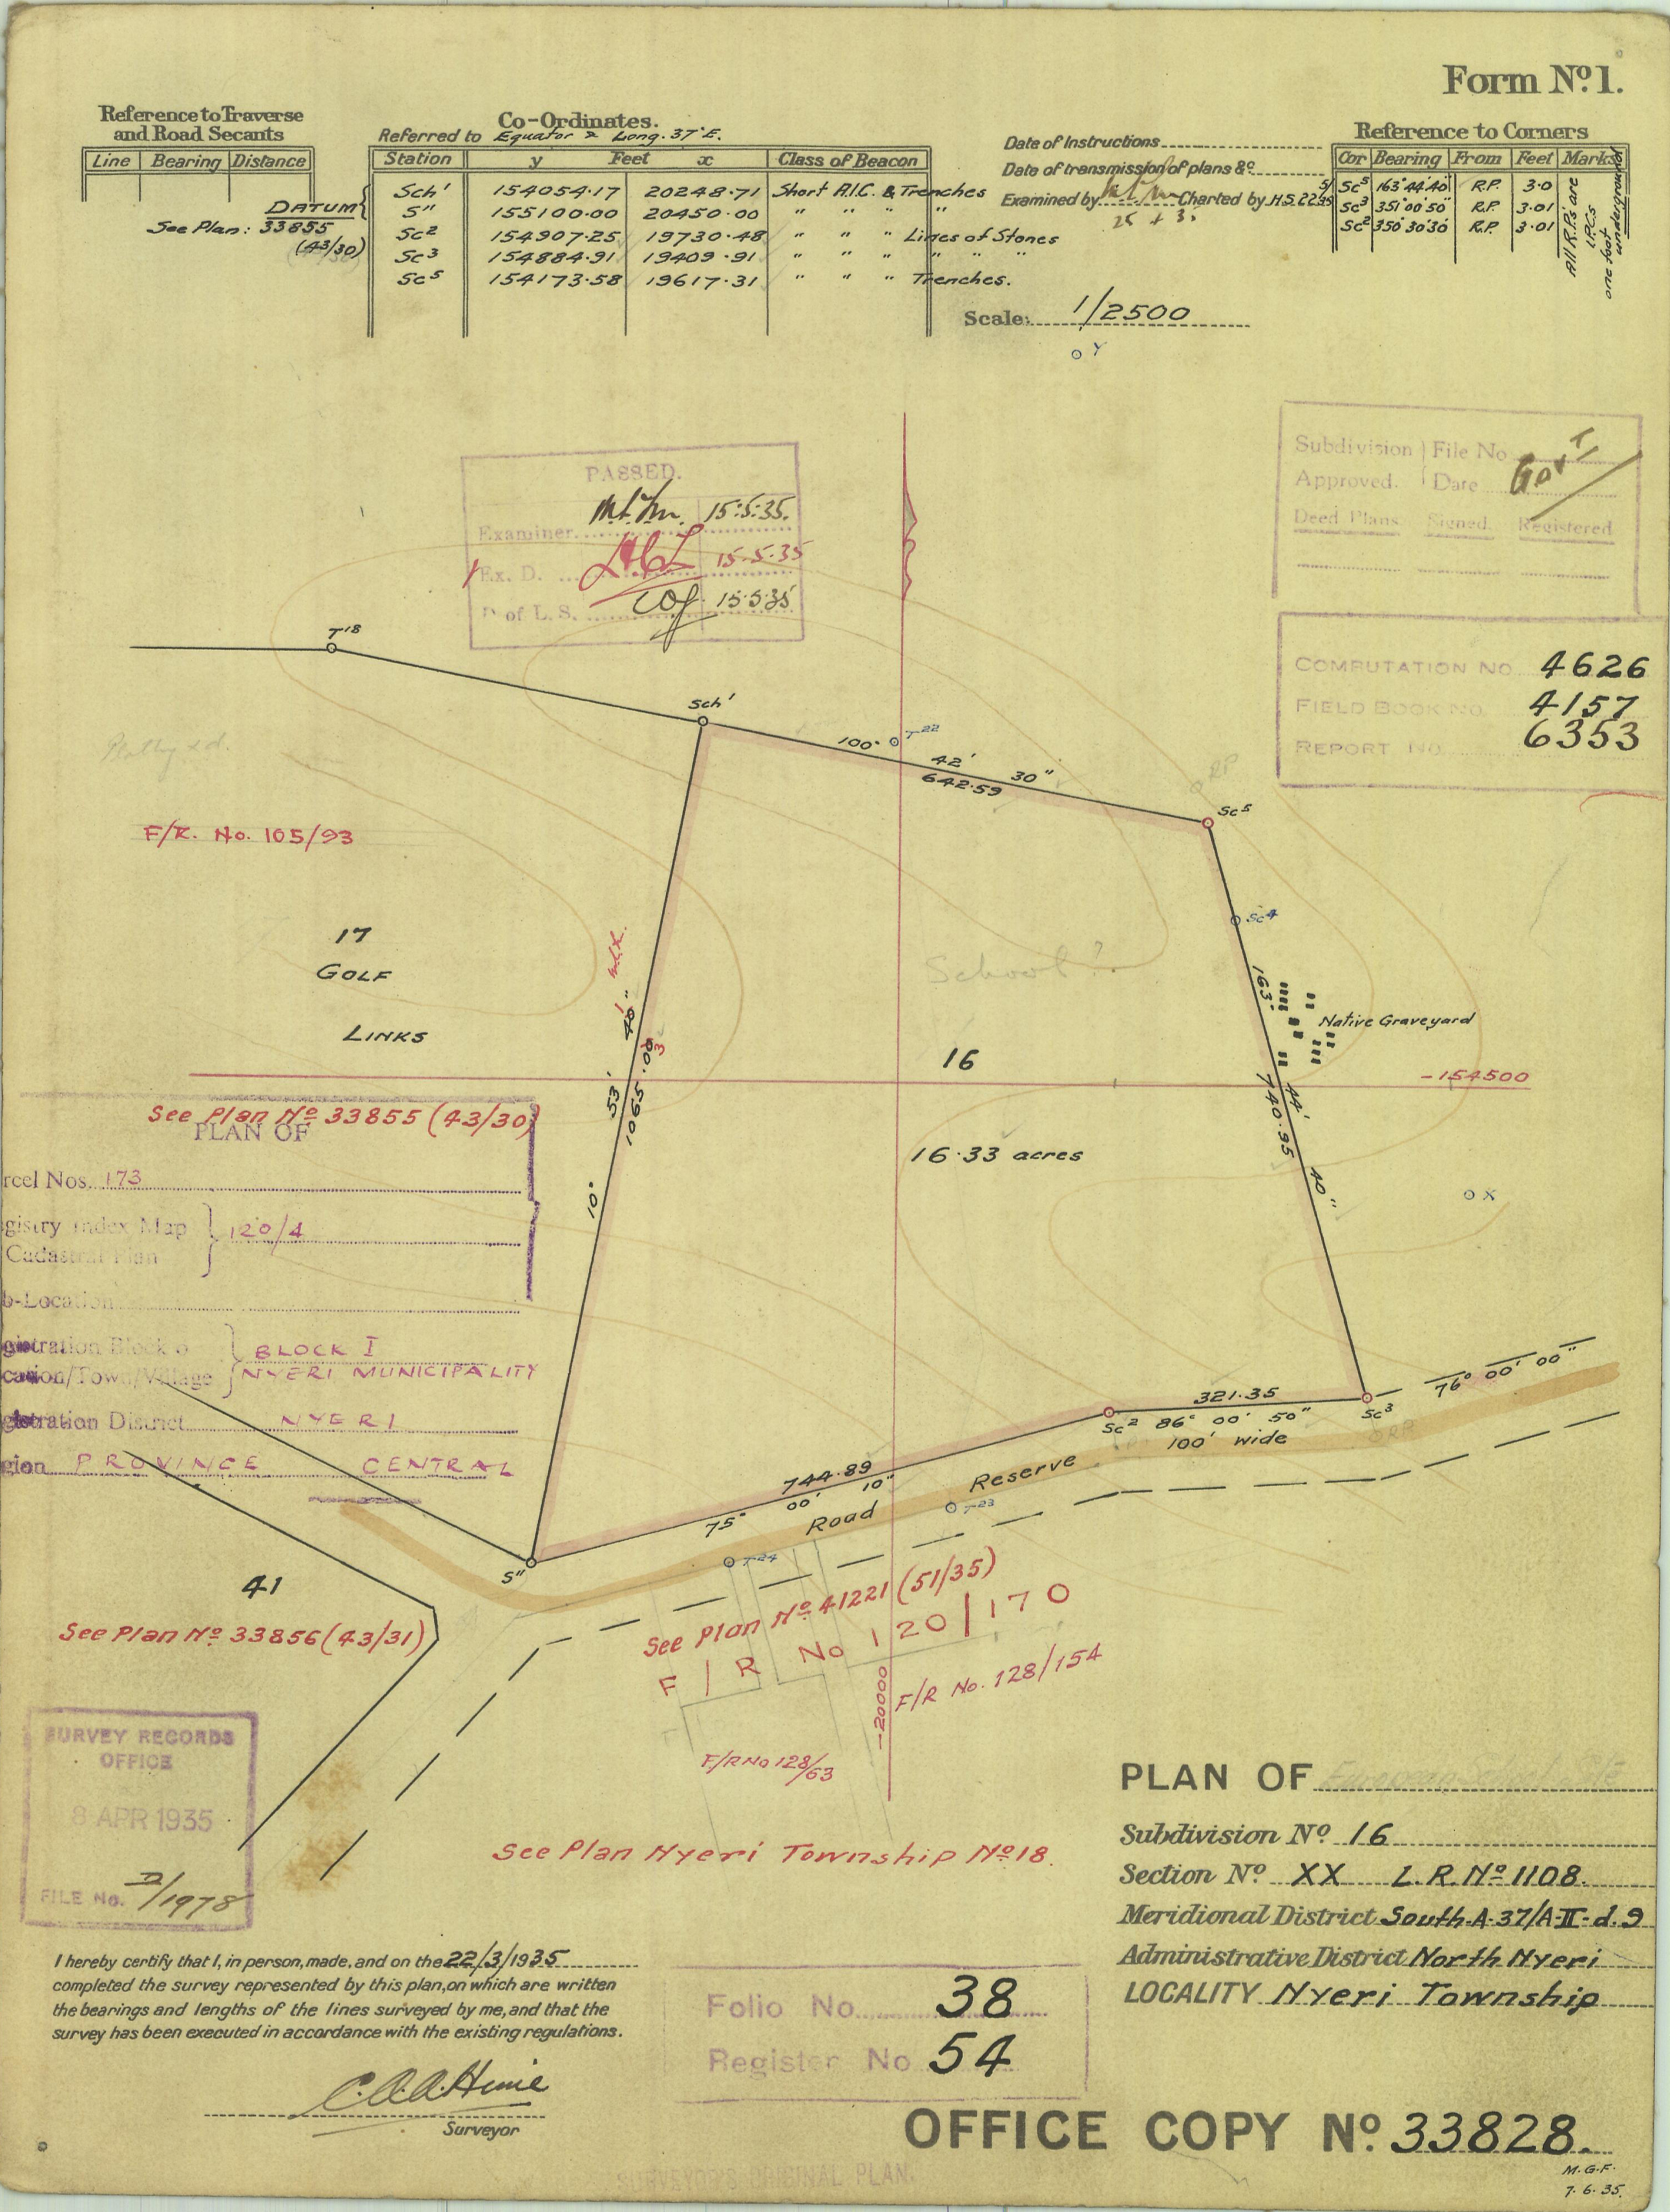 Form Nº 1.
Reference to Traverse
and Road Secants
Line Bearing Distance
DATUM
See Plan: 33855
(43/30)
Co-Ordinates.
Referred to Equator & Long. 37°E.
Station y Feet x Class of Beacon
Sch' 154054.17 20248.71 Short A.I.C. & Trenches
S" 155100.00 20450.00 " " " "
Sc² 154907.25 19730.48 " " " Lines of Stones
Sc³ 154884.91 19409.91 " " " " " "
Sc⁵ 154173.58 19617.31 " " " Trenches.
Date of Instructions
Date of transmission of plans &c
Examined by Charted by H.S.
Scale: 1/2500
Reference to Corners
Cor Bearing From Feet Marks
Sc⁵ 163°44'40" R.P. 3.0
Sc³ 351°00'50" R.P. 3.01
Sc² 350°30'30" R.P. 3.01
All R.P.s are
I.P.C.s
one foot
underground
Y
PASSED.
Examiner. 15:5:35.
Ex. D. 15.5.35
D of L. S. 15.5.35
Subdivision File No Gov't
Approved. Date
Deed Plans. Signed. Registered.
COMPUTATION NO 4626
FIELD BOOK NO. 4157
REPORT NO. 6353
T¹⁸
Sch'
T²²
100° 42' 30"
642.59
RP
Sc⁵
Sc⁴
F/R. No. 105/93
17
GOLF
LINKS
School?
16
16.33 acres
163° 44' 40"
740.95
Native Graveyard
-154500
X
10° 53'
1065
See Plan Nº 33855 (43/30)
PLAN OF
rcel Nos. 173
gistry Index Map 120/4
Cadastral Plan
b-Location
gistration Block o BLOCK I
cation/Town/Village NYERI MUNICIPALITY
gistration District NYERI
gion PROVINCE CENTRAL
321.35
Sc² 86° 00' 50"
Sc³
76° 00' 00"
100' wide
744.89
75° 00' 10"
Road Reserve
T²³
T²⁴
S"
41
See Plan Nº 33856 (43/31)
See Plan Nº 41221 (51/35)
F/R No 120/170
F/R No. 128/154
-20000
F/R No 128/63
See Plan Nyeri Township Nº 18.
SURVEY RECORDS
OFFICE
8 APR 1935
FILE No. D/1978
PLAN OF
Subdivision Nº 16
Section Nº XX L.R. Nº 1108.
Meridional District South A-37/A-II-d.9
Administrative District North Nyeri
LOCALITY Nyeri Township
I hereby certify that I, in person, made, and on the 22/3/1935
completed the survey represented by this plan, on which are written
the bearings and lengths of the lines surveyed by me, and that the
survey has been executed in accordance with the existing regulations.
Surveyor
Folio No. 38
Register No 54
OFFICE COPY Nº 33828.
SURVEYOR'S ORIGINAL PLAN.
M.G.F.
7.6.35.